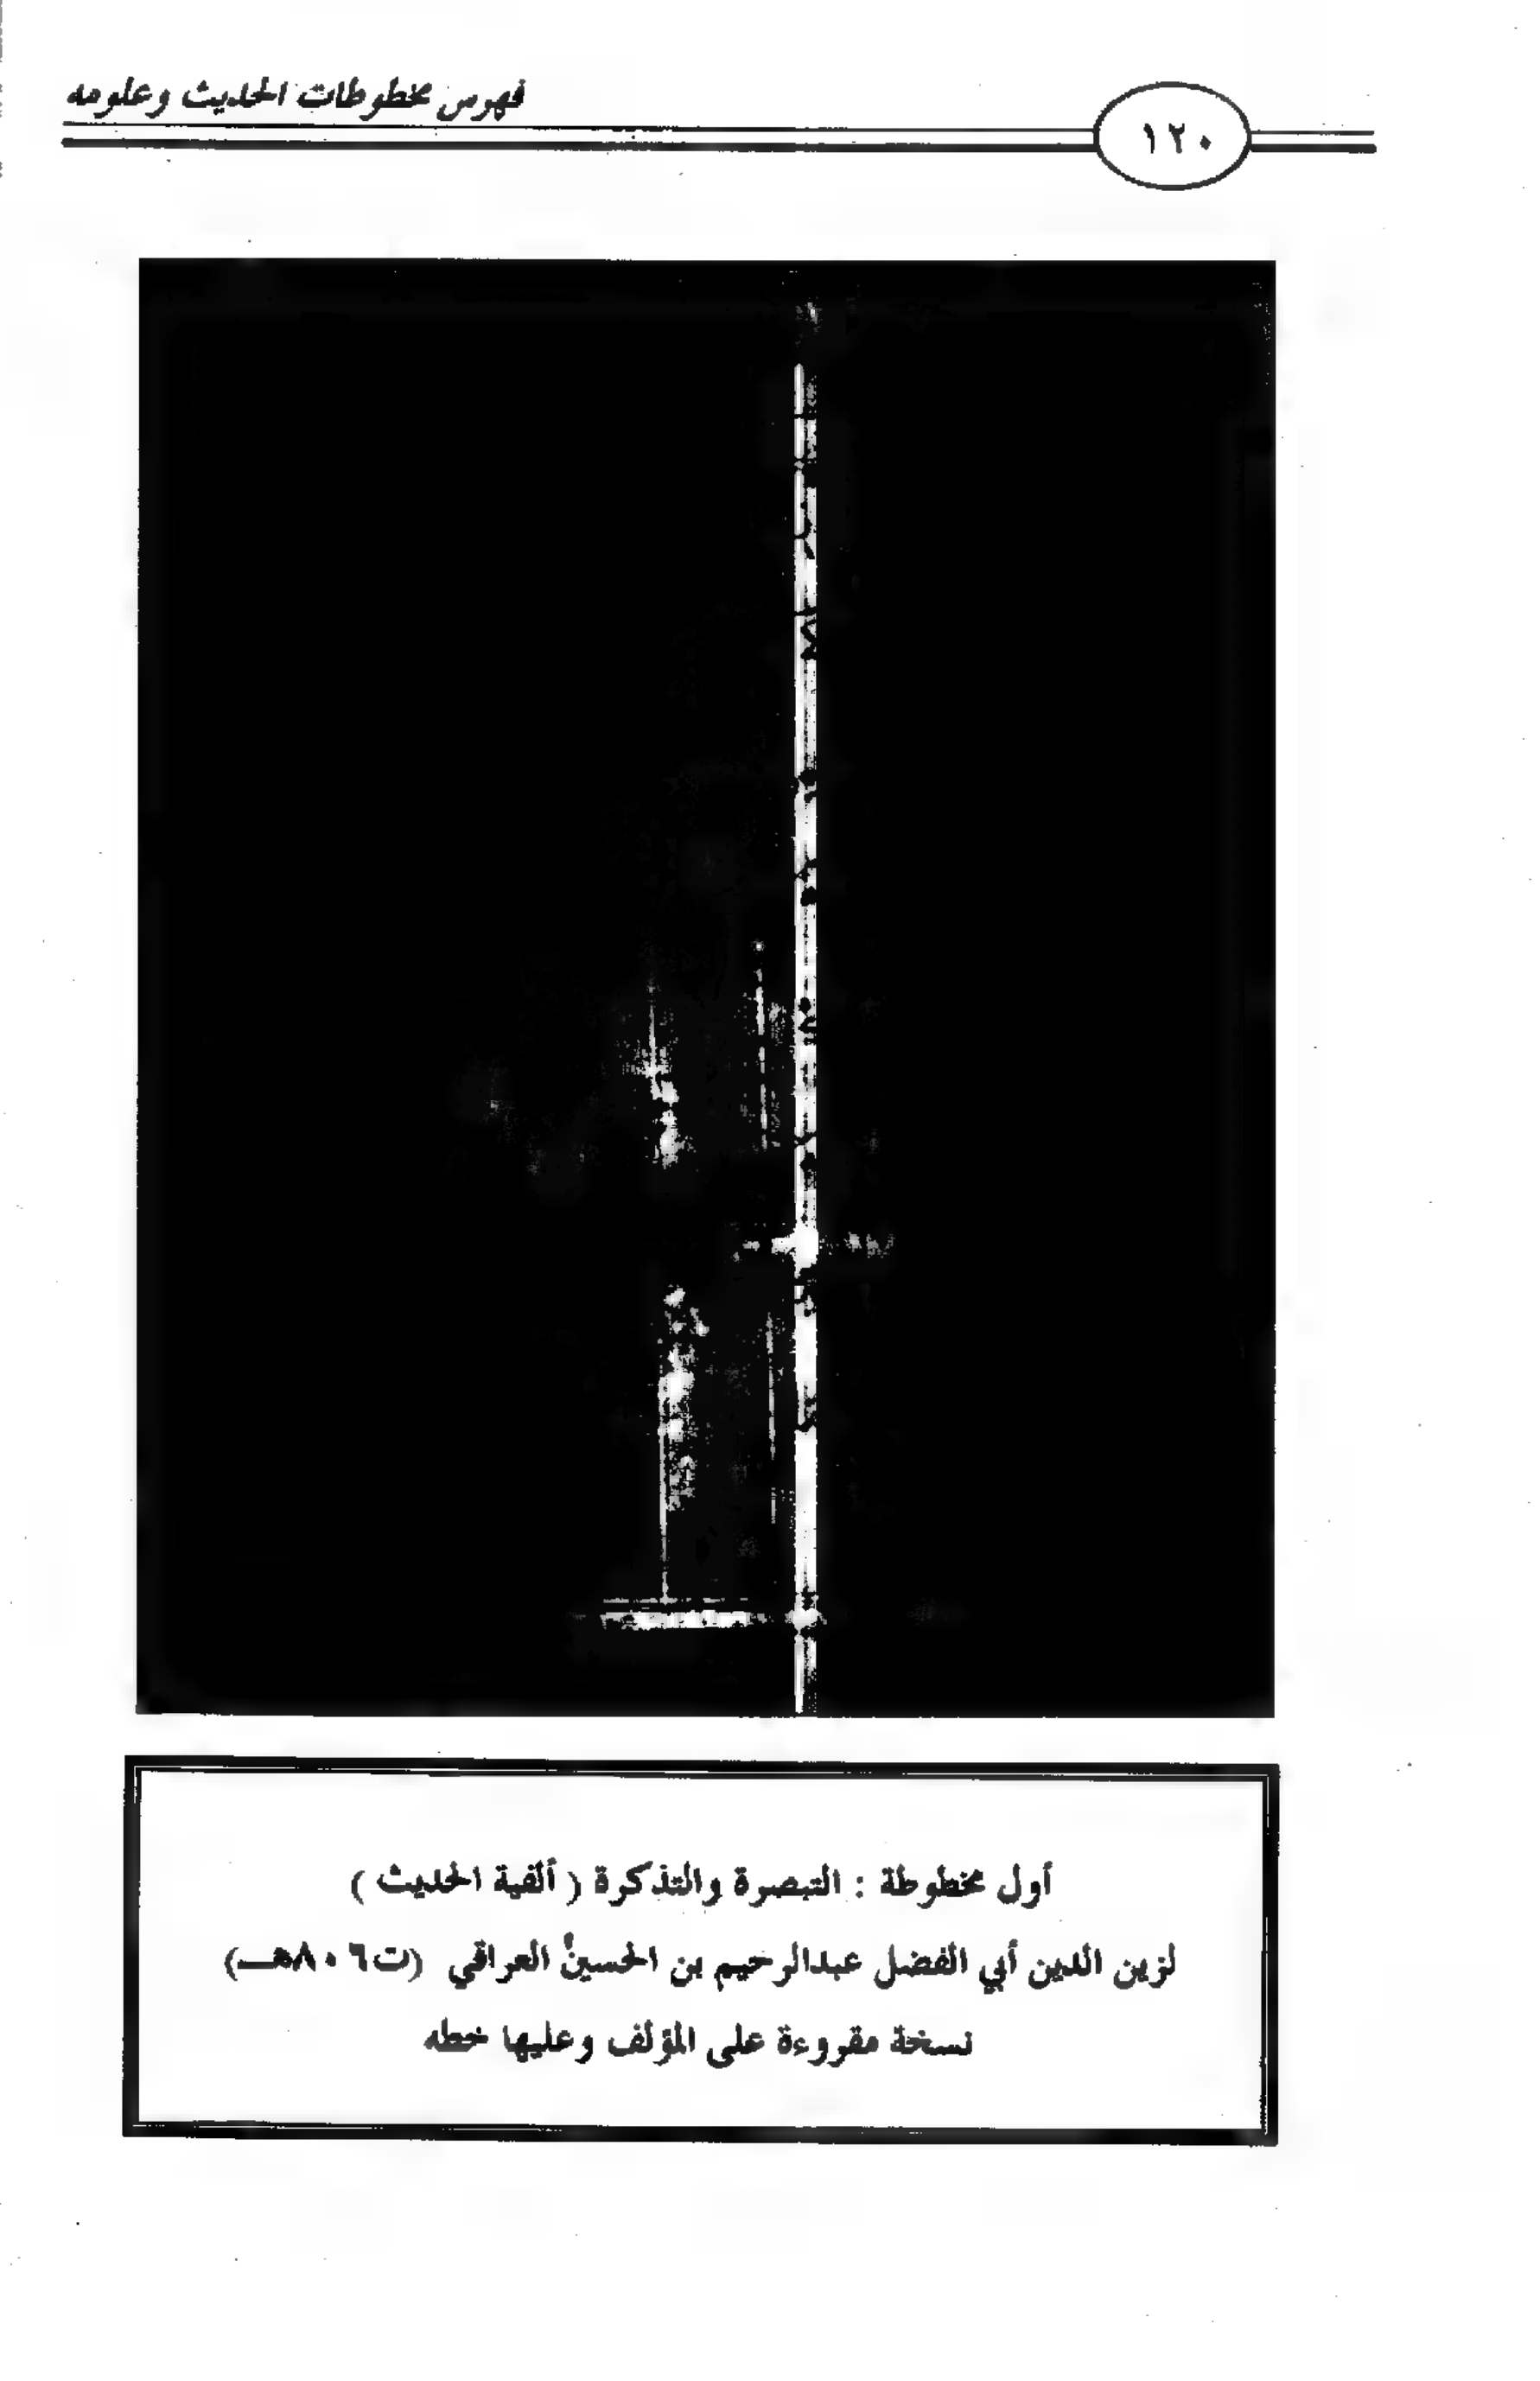 فهرس مخطوطات الحديث وعلومه
١٢٠
أول مخطوطة : التبصرة والتذكرة ( ألفية الحديث )
لزين الدين أبي الفضل عبدالرحيم بن الحسين العراقي (ت٨٠٦هـ)
نسخة مقروءة على المؤلف وعليها خطه